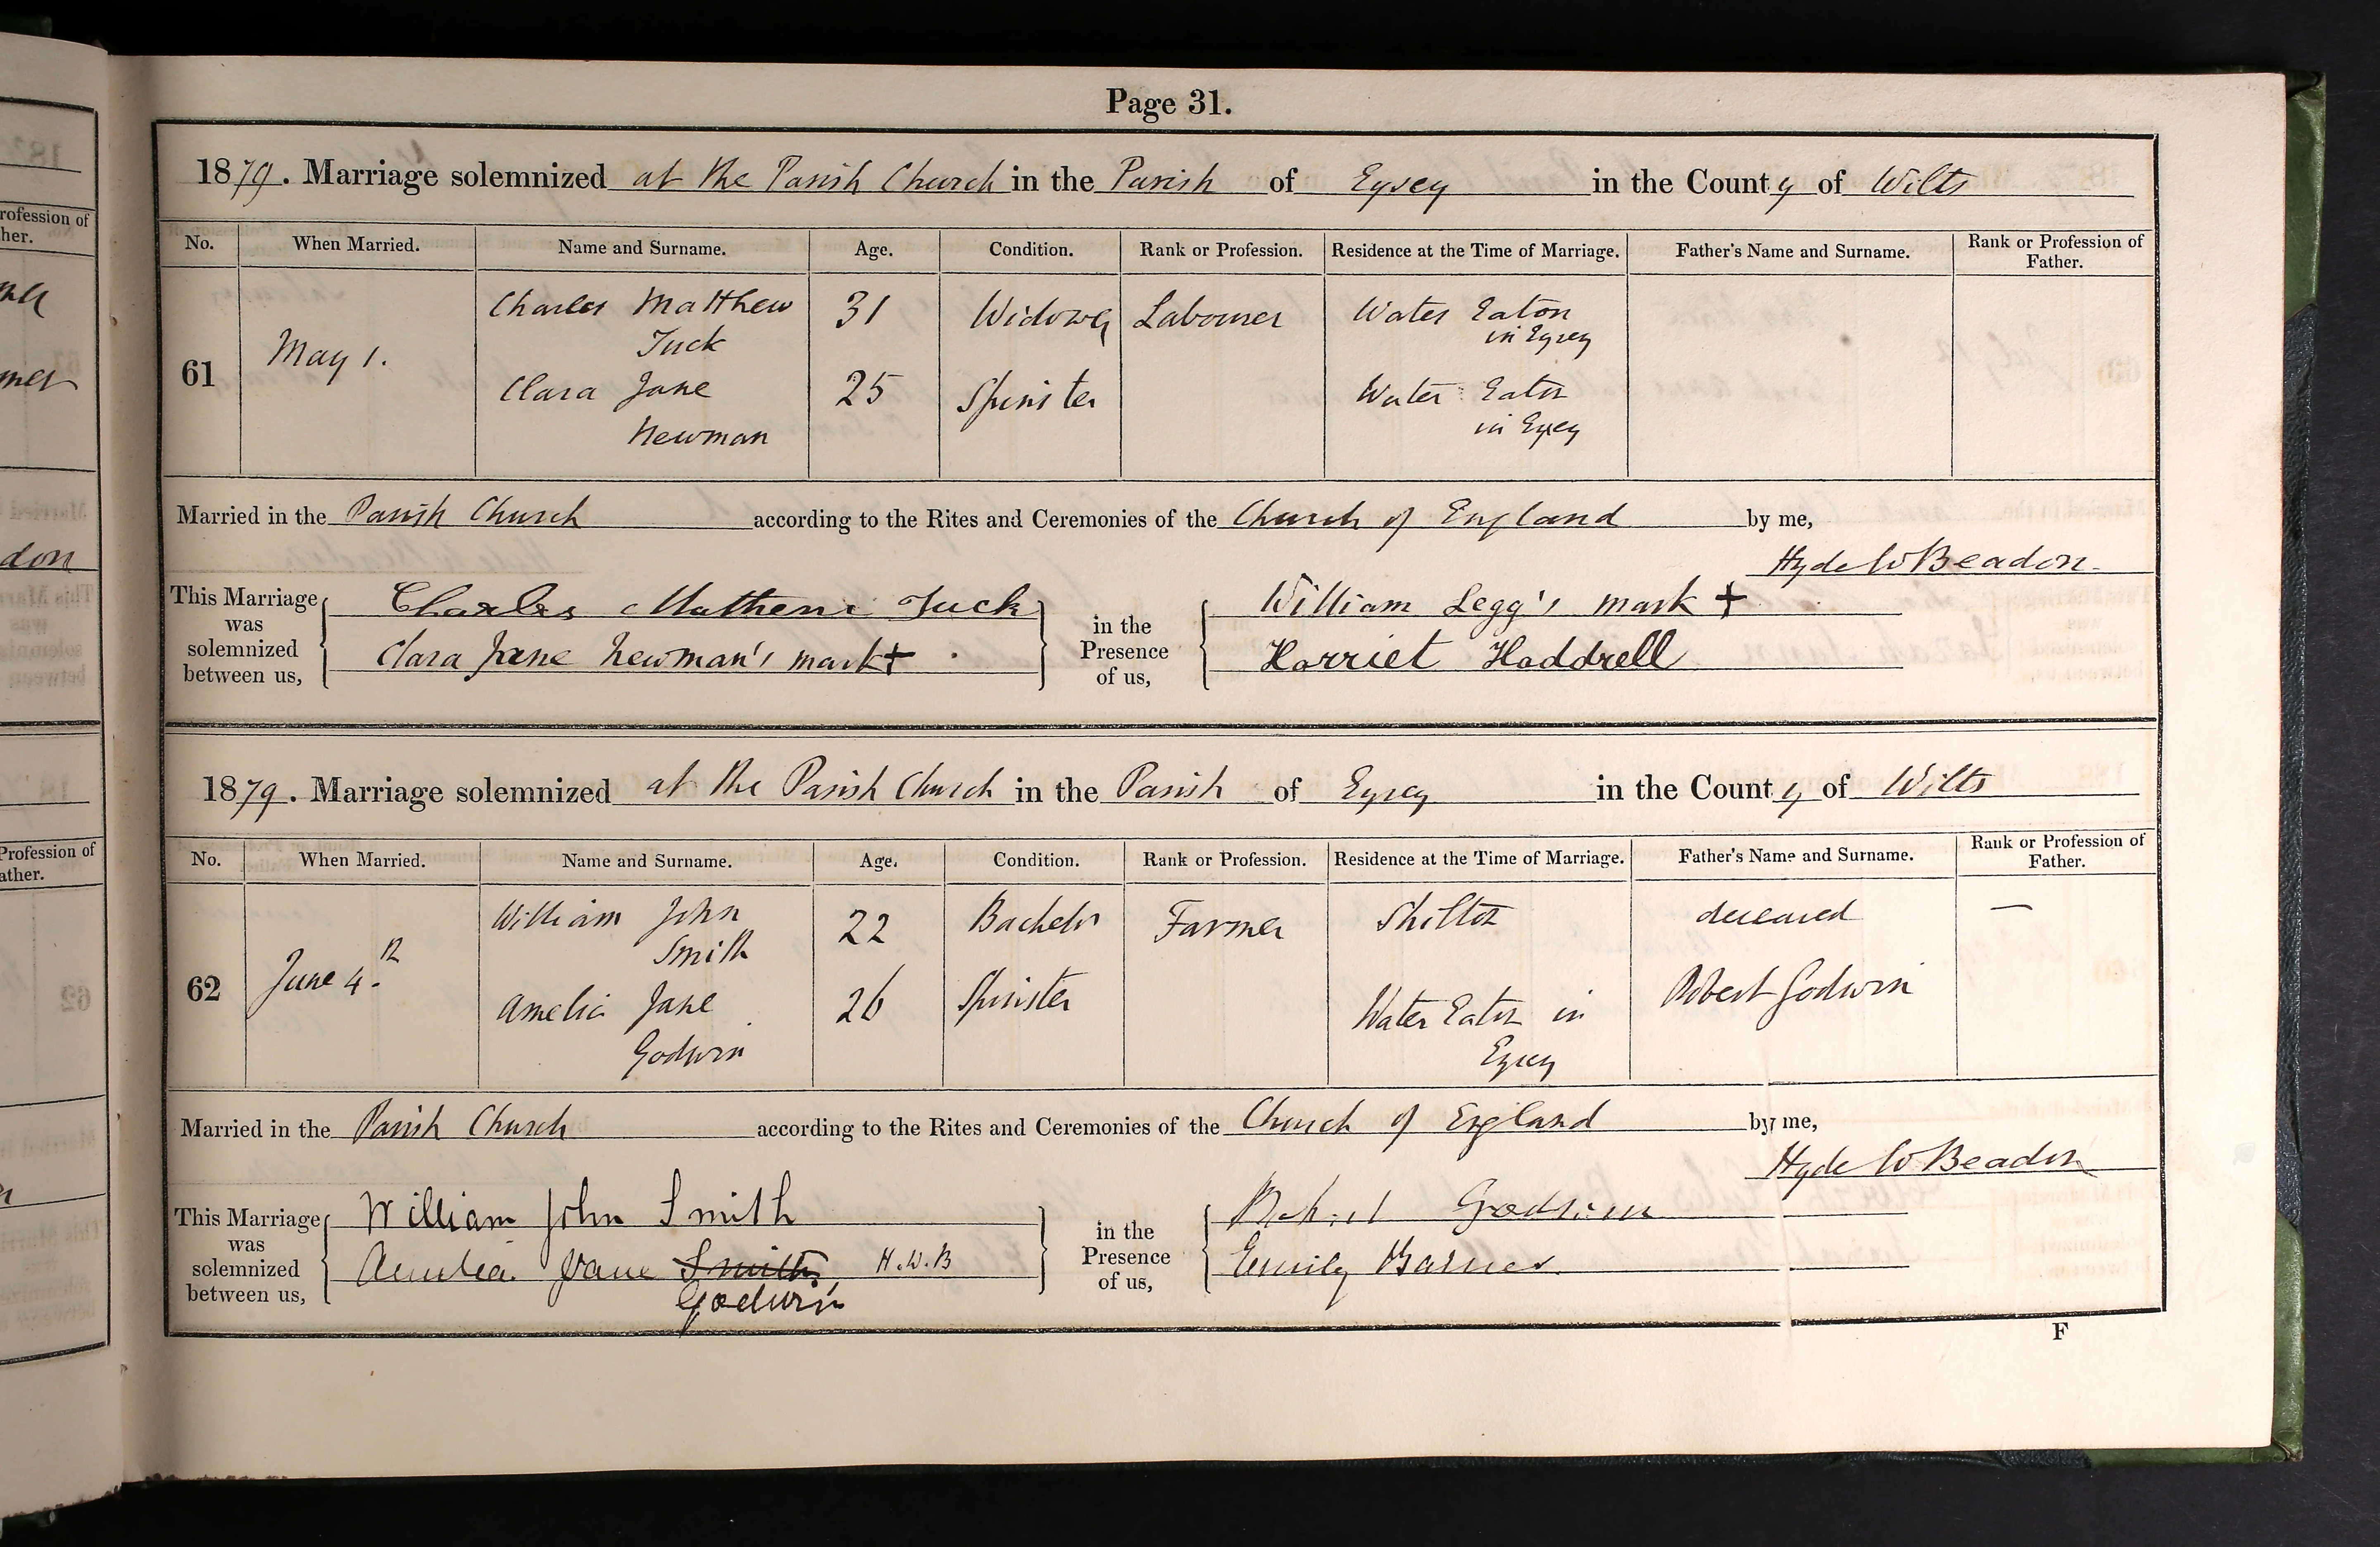 Page 31.
1879. Marriage solemnized at the Parish Church in the Parish of Eysey in the County of Wilts
No. When Married. Name and Surname. Age. Condition. Rank or Profession. Residence at the Time of Marriage. Father's Name and Surname. Rank or Profession of Father.
Charles Matthew 31 Widower Labourer Water Eaton
Tuck in Eysey
61 May 1.
Clara Jane 25 Spinster Water Eaton
Newman in Eysey
Married in the Parish Church according to the Rites and Ceremonies of the Church of England by me,
Hyde W Beadon.
This Marriage was solemnized between us,
Charles Mathew Tuck
Clara Jane Newman's mark +
in the Presence of us,
William Legg's mark +
Harriet Haddrell
1879. Marriage solemnized at the Parish Church in the Parish of Eysey in the County of Wilts
No. When Married. Name and Surname. Age. Condition. Rank or Profession. Residence at the Time of Marriage. Father's Name and Surname. Rank or Profession of Father.
William John 22 Bachelor Farmer Shilton deceased —
Smith
62 June 4th
Amelia Jane 26 Spinster Water Eaton in Robert Godwin
Godwin Eysey
Married in the Parish Church according to the Rites and Ceremonies of the Church of England by me,
Hyde W Beadon
This Marriage was solemnized between us,
William John Smith
Amelia Jane Smith H.W.B
Godwin
in the Presence of us,
Robert Godwin
Emily Barnes
F
rofession of
her.
don
Profession of
ather.